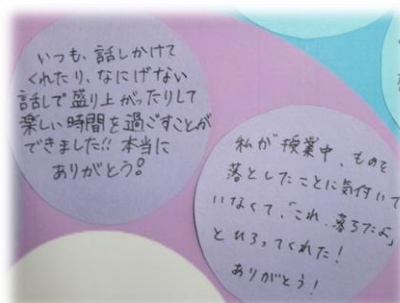 いつも、話しかけて
くれたり、なにげない
話しで盛り上がったりして
楽しい時間を過ごすことが
できました!! 本当に
ありがとう!
私が授業中、ものを
落としたことに気付いて
いなくて、「これ、落ちたよ」
とひろってくれた!
ありがとう!